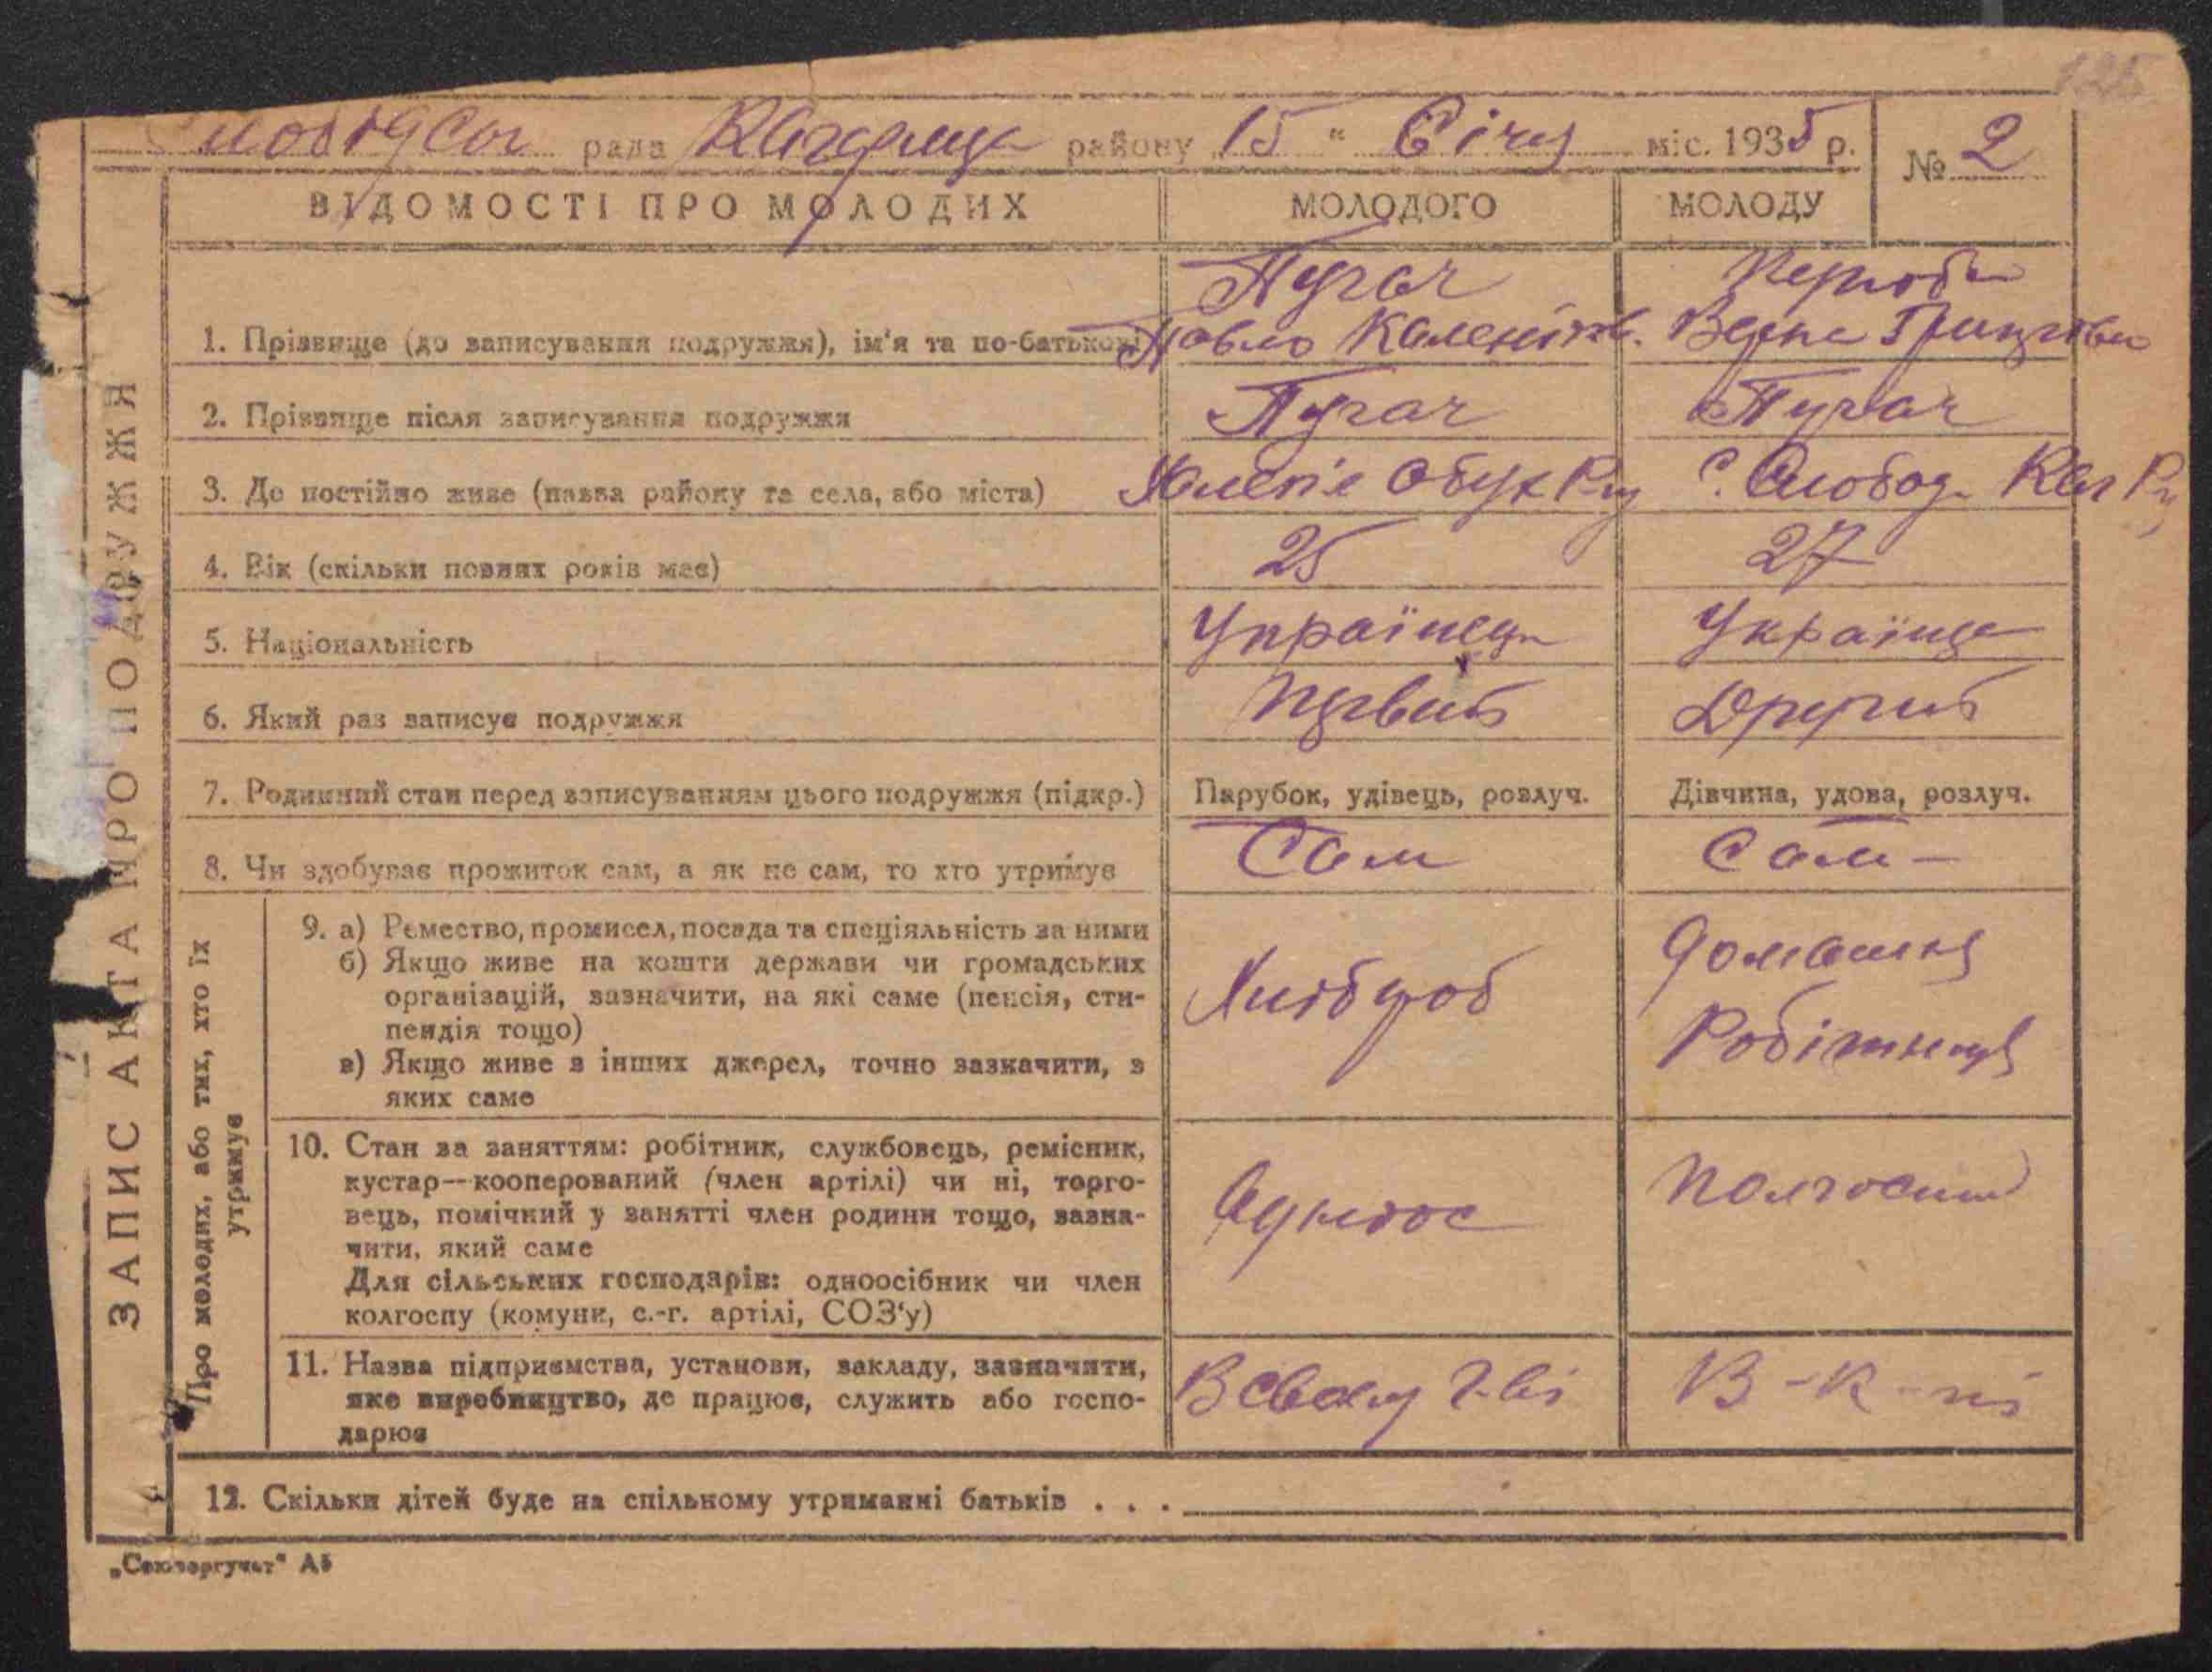 125
рада Кагарлиць району 15 " Січн міс. 1935 р. № 2
ВІДОМОСТІ ПРО МОЛОДИХ МОЛОДОГО МОЛОДУ
Пугач
1. Прізвище (до записування подружжя), ім'я та по-батькові Павло Каленіков.
2. Прізвище після записування подружжя Пугач Пугач
3. Де постійно живе (назва району та села, або міста) Халепіє Обух Р-ну с. Слобод. Каг Р-ну
4. Вік (скільки повних років має) 25 27
5. Національність Українець Українца
6. Який раз записує подружжя Первий Другий
7. Родинний стан перед записуванням цього подружжя (підкр.) Парубок, удівець, розлуч. Дівчина, удова, розлуч.
8. Чи здобуває прожиток сам, а як не сам, то хто утримує Сам Сам –
Про молодих, або тих, хто їх утримує
9. а) Ремество, промисел, посада та спеціяльність за ними
б) Якщо живе на кошти держави чи громадських
організацій, зазначити, на які саме (пенсія, сти-
пендія тощо)
в) Якщо живе з інших джерел, точно зазначити, з
яких саме
Хлібороб
Домашня
Робітниця
10. Стан за заняттям: робітник, службовець, ремісник,
кустар—кооперований (член артілі) чи ні, торго-
вець, помічний у занятті член родини тощо, зазна-
чити, який саме
Для сільських господарів: одноосібник чи член
колгоспу (комуни, с.-г. артілі, СОЗ'у)
11. Назва підприємства, установи, закладу, зазначити,
яке виробництво, де працює, служить або госпо-
дарює
В свому г-ві В-К-пі
12. Скільки дітей буде на спільному утриманні батьків . . .
ЗАПИС АКТА ПРО ПОДРУЖЖЯ
"Союзоргучет" А5